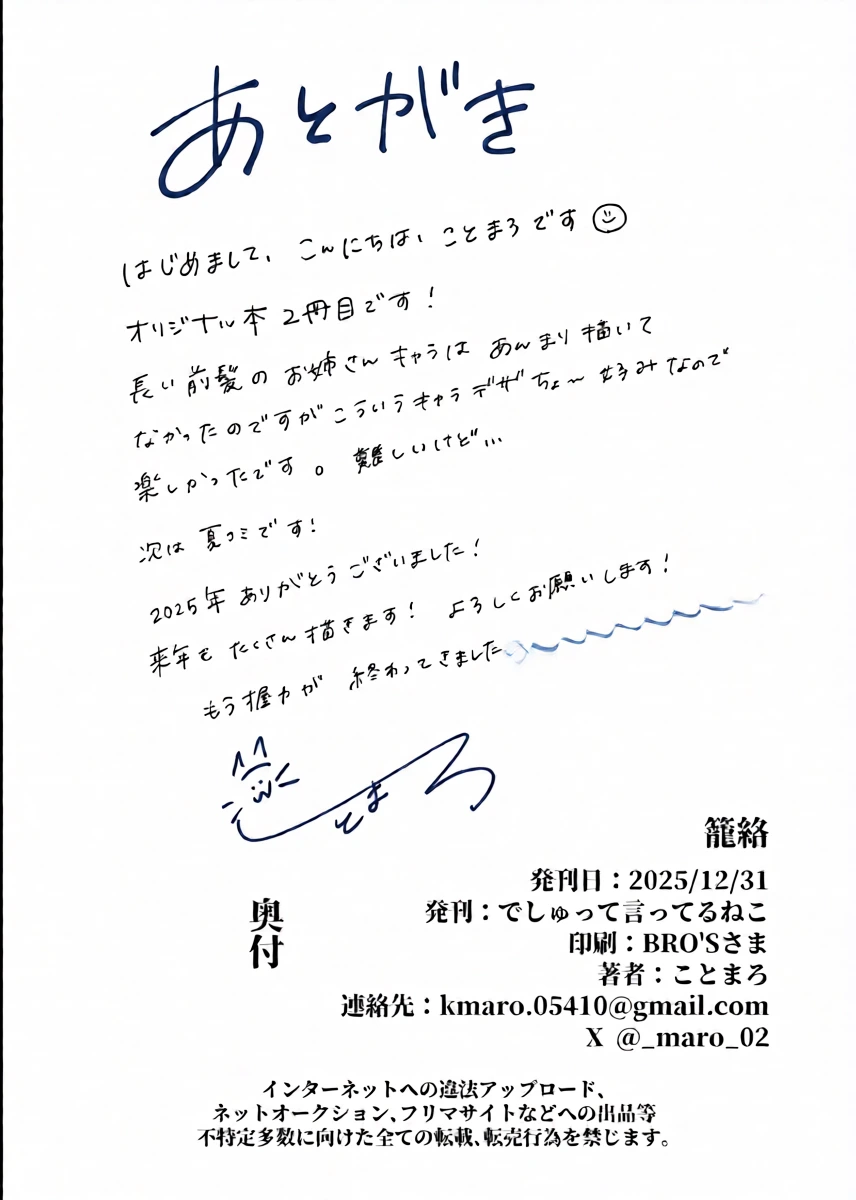 あとがき
はじめまして、こんにちは、ことまろです
オリジナル本2冊目です！
長い前髪のお姉さんキャラはあんまり描いて
なかったのですがこういうキャラデザちょ〜好みなので
楽しかったです。難しいけど…
次は夏コミです！
2025年ありがとうございました！
来年もたくさん描きます！よろしくお願いします！
もう握力が終わってきました
ことまろ
籠絡
奥付
発刊日：2025/12/31
発刊：でしゅって言ってるねこ
印刷：BRO'Sさま
著者：ことまろ
連絡先：kmaro.05410@gmail.com
X @_maro_02
インターネットへの違法アップロード、
ネットオークション、フリマサイトなどへの出品等
不特定多数に向けた全ての転載、転売行為を禁じます。